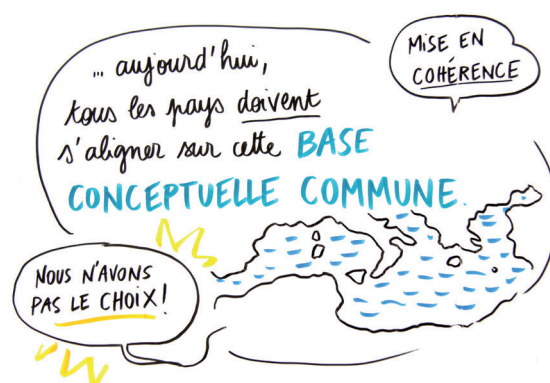 ... aujourd'hui,
tous les pays doivent
s'aligner sur cette BASE
CONCEPTUELLE COMMUNE.
MISE EN
COHÉRENCE
NOUS N'AVONS
PAS LE CHOIX!